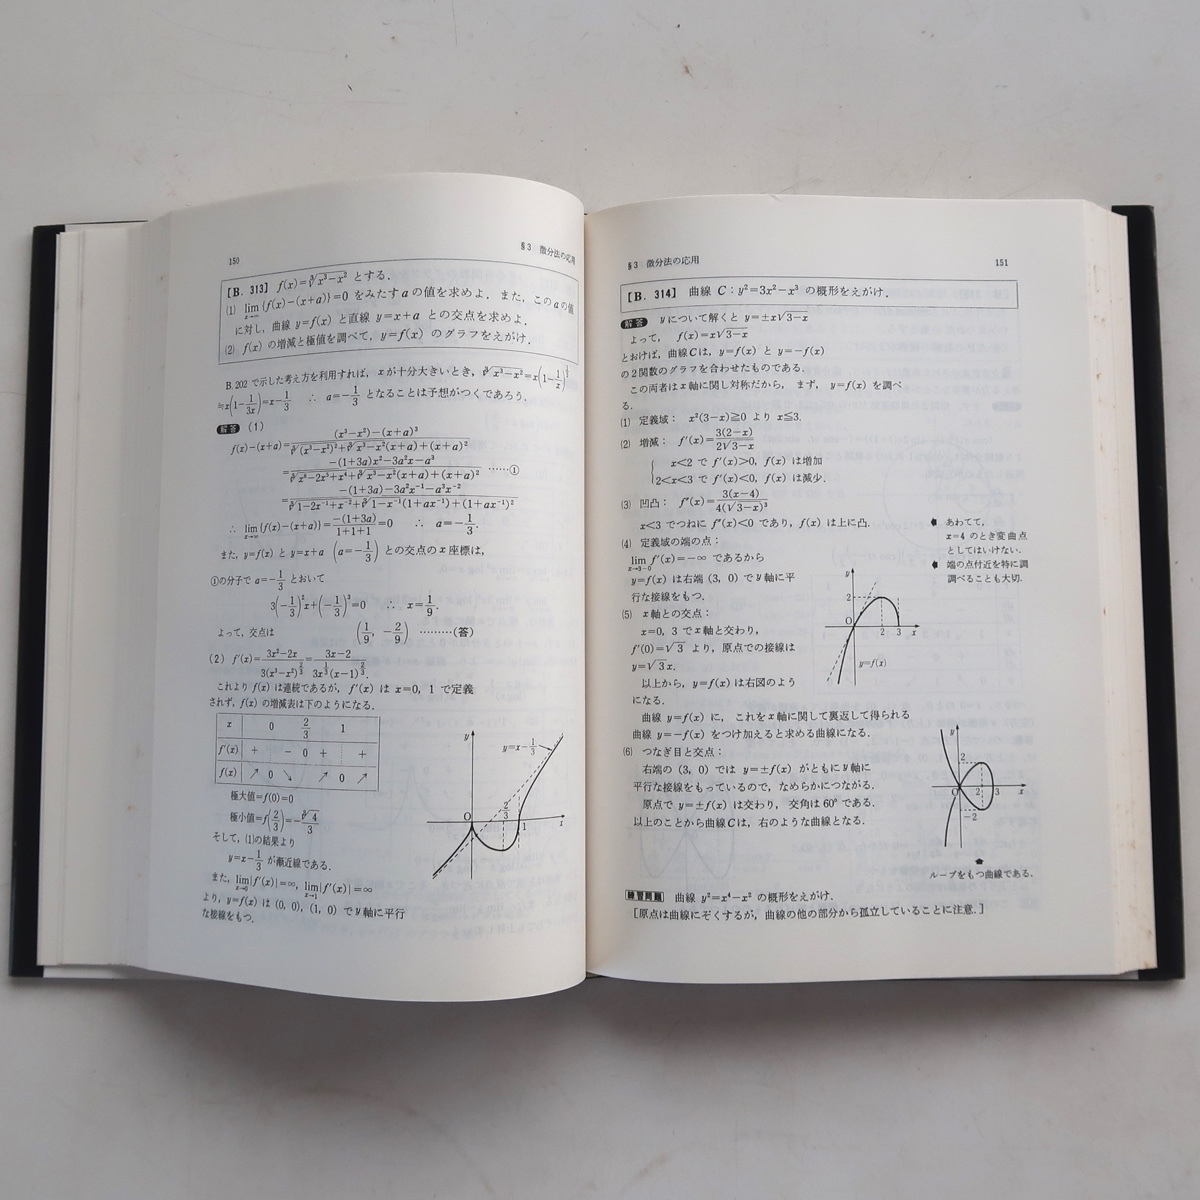 150
§3 微分法の応用
[B. 313] f(x)=∛(x³−x²) とする.
(1) lim_{x→∞}{f(x)−(x+a)}=0 をみたす a の値を求めよ. また, この a の値
に対し, 曲線 y=f(x) と直線 y=x+a との交点を求めよ.
(2) f(x) の増減と極値を調べて, y=f(x) のグラフをえがけ.
B.202 で示した考え方を利用すれば, x が十分大きいとき, ∛(x³−x²)=x(1−1/x)^{1/3}
≒x(1−1/3x)=x−1/3 ∴ a=−1/3 となることは予想がつくであろう.
解答 (1)
f(x)−(x+a)=((x³−x²)−(x+a)³)/(∛(x³−x²)²+∛(x³−x²)(x+a)+(x+a)²)
=(−(1+3a)x²−3a²x−a³)/(∛(x⁶−2x⁵+x⁴)+∛(x³−x²)(x+a)+(x+a)²) ……①
=(−(1+3a)−3a²x⁻¹−a³x⁻²)/(∛(1−2x⁻¹+x⁻²)+∛(1−x⁻¹)(1+ax⁻¹)+(1+ax⁻¹)²)
∴ lim_{x→∞}{f(x)−(x+a)}=−(1+3a)/(1+1+1)=0 ∴ a=−1/3.
また, y=f(x) と y=x+a (a=−1/3) との交点の x 座標は,
①の分子で a=−1/3 とおいて
3(−1/3)²x+(−1/3)³=0 ∴ x=1/9.
よって, 交点は (1/9, −2/9) ………(答)
(2) f'(x)=(3x²−2x)/(3(x³−x²)^{2/3})=(3x−2)/(3x^{1/3}(x−1)^{2/3}).
これより f(x) は連続であるが, f'(x) は x=0, 1 で定義
されず, f(x) の増減表は下のようになる.
x 0 2/3 1
f'(x) + − 0 + +
f(x) ↗ 0 ↘ ↗ 0 ↗
極大値=f(0)=0
極小値=f(2/3)=−∛4/3
そして, (1)の結果より
y=x−1/3 が漸近線である.
また, lim_{x→0}|f'(x)|=∞, lim_{x→1}|f'(x)|=∞
より, y=f(x) は (0, 0), (1, 0) で y 軸に平行
な接線をもつ.
y
y=x−1/3
O
2/3
1
x
§3 微分法の応用
151
[B. 314] 曲線 C : y²=3x²−x³ の概形をえがけ.
解答 y について解くと y=±x√(3−x)
よって, f(x)=x√(3−x)
とおけば, 曲線 C は, y=f(x) と y=−f(x)
の 2 関数のグラフを合わせたものである.
この両者は x 軸に関し対称だから, まず, y=f(x) を調べ
る.
(1) 定義域: x²(3−x)≧0 より x≦3.
(2) 増減: f'(x)=3(2−x)/2√(3−x)
x<2 で f'(x)>0, f(x) は増加
2<x<3 で f'(x)<0, f(x) は減少.
(3) 凹凸: f''(x)=3(x−4)/4(√(3−x))³
x<3 でつねに f''(x)<0 であり, f(x) は上に凸.
(4) 定義域の端の点:
lim_{x→3−0} f'(x)=−∞ であるから
y=f(x) は右端 (3, 0) で y 軸に平
行な接線をもつ.
(5) x 軸との交点:
x=0, 3 で x 軸と交わり,
f'(0)=√3 より, 原点での接線は
y=√3 x.
以上から, y=f(x) は右図のよう
になる.
曲線 y=f(x) に, これを x 軸に関して裏返して得られる
曲線 y=−f(x) をつけ加えると求める曲線になる.
(6) つなぎ目と交点:
右端の (3, 0) では y=±f(x) がともに y 軸に
平行な接線をもっているので, なめらかにつながる.
原点で y=±f(x) は交わり, 交角は 60° である.
以上のことから曲線 C は, 右のような曲線となる.
あわてて,
x=4 のとき変曲点
としてはいけない.
端の点付近を特に調
調べることも大切.
y
2
O
2 3 x
y=f(x)
y
2
O
2 3 x
−2
ループをもつ曲線である.
練習問題 曲線 y²=x⁴−x² の概形をえがけ.
[原点は曲線にぞくするが, 曲線の他の部分から孤立していることに注意.]